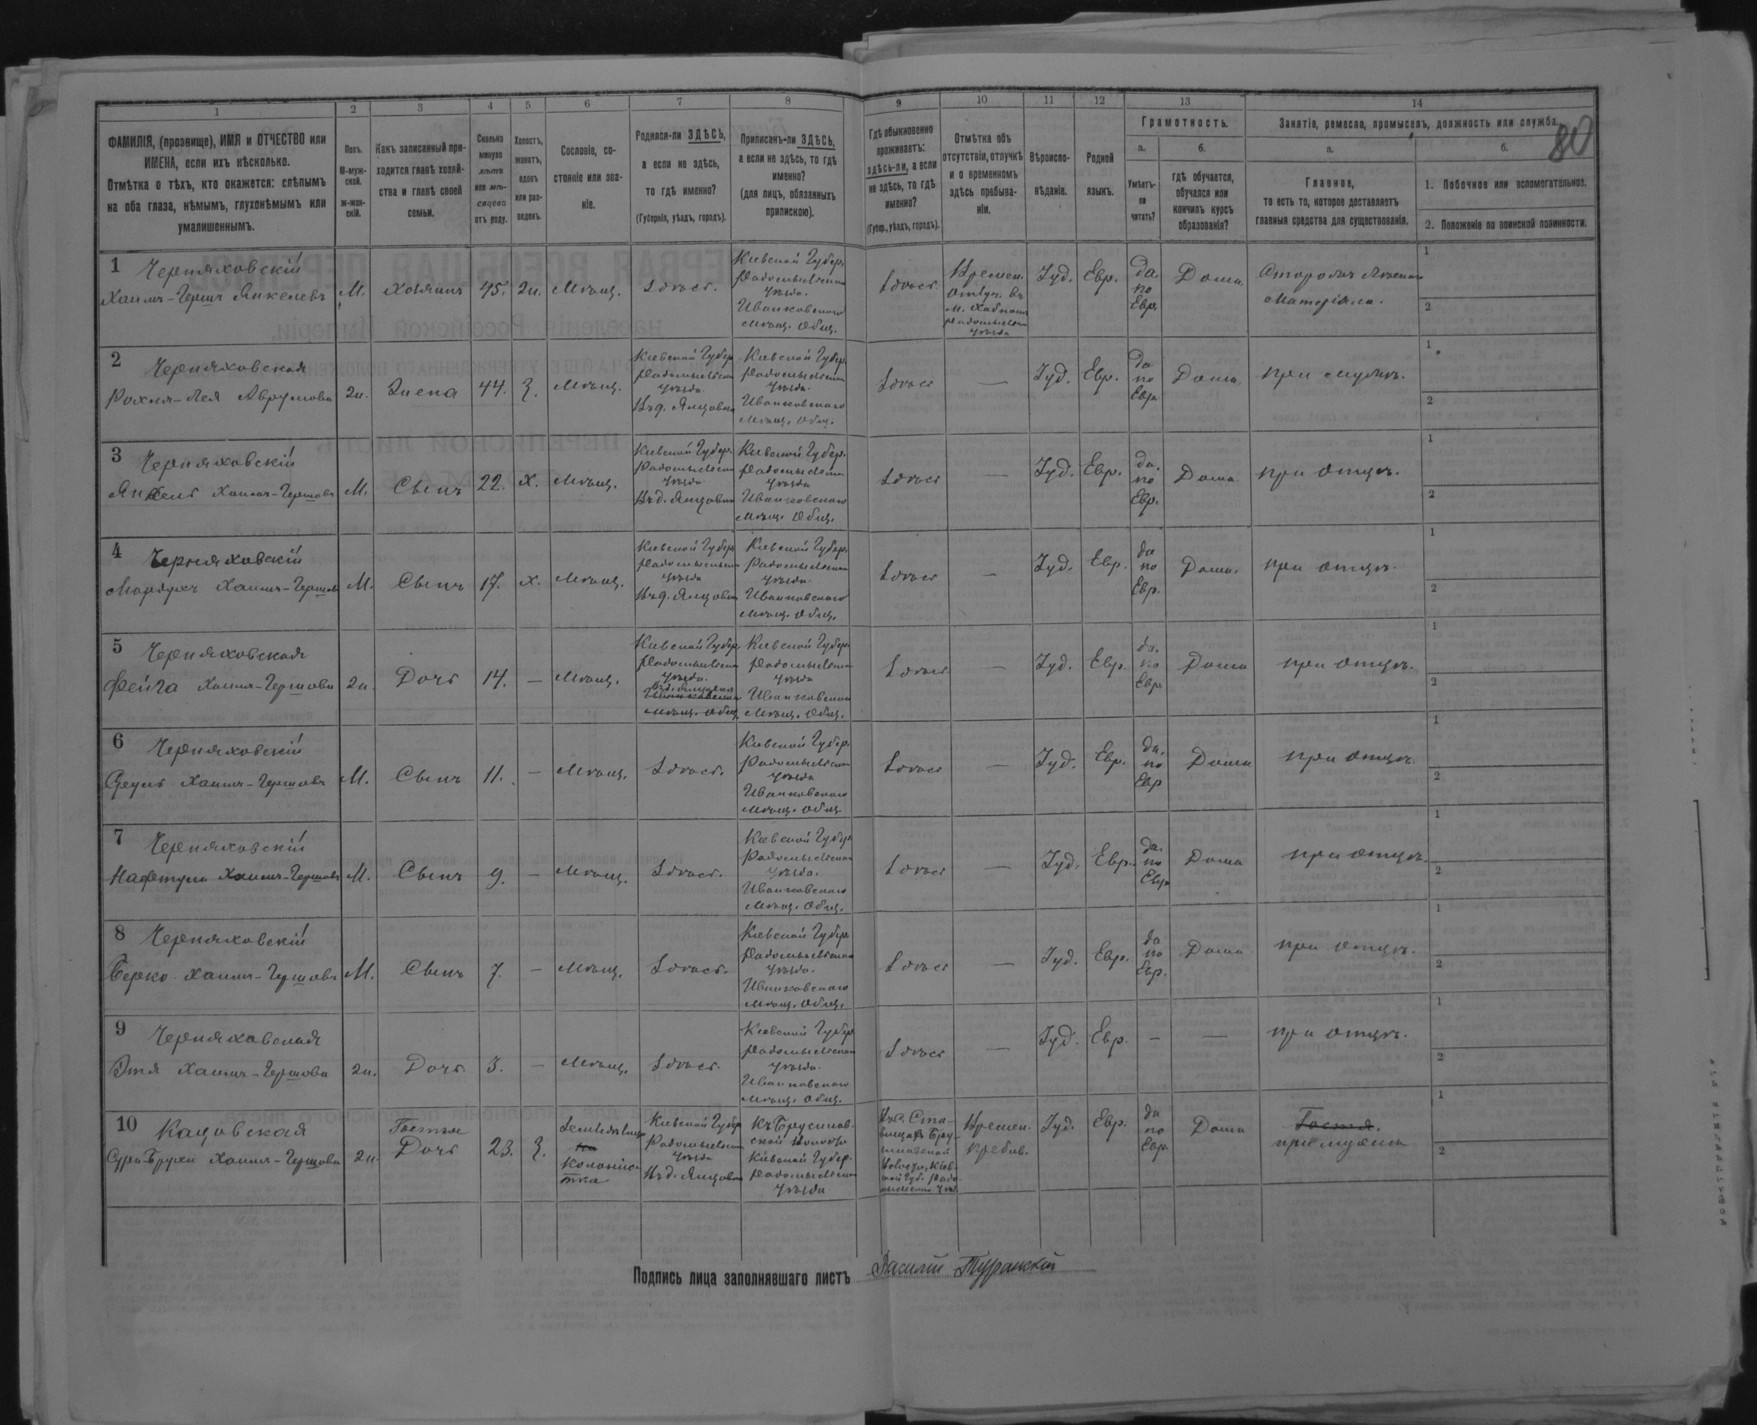 80
1 2 3 4 5 6 7 8 9 10 11 12 13 14
ФАМИЛІЯ, (прозвище), ИМЯ и ОТЧЕСТВО или
ИМЕНА, если ихъ нѣсколько.
Отмѣтка о тѣхъ, кто окажется: слѣпымъ
на оба глаза, нѣмымъ, глухонѣмымъ или
умалишеннымъ.
Полъ.
М-муж-
ской.
Ж-жен-
скій.
Какъ записанный при-
ходится главѣ хозяй-
ства и главѣ своей
семьи.
Сколько
минуло
лѣтъ
или мѣ-
сяцевъ
отъ роду.
Холостъ,
женатъ,
вдовъ
или раз-
веденъ.
Сословіе, со-
стояніе или зва-
ніе.
Родился-ли ЗДѢСЬ,
а если не здѣсь,
то гдѣ именно?
(Губернія, уѣздъ, городъ).
Приписанъ-ли ЗДѢСЬ,
а если не здѣсь, то гдѣ
именно?
(для лицъ, обязанныхъ
припискою).
Гдѣ обыкновенно
проживаетъ:
здѣсь-ли, а если
не здѣсь, то гдѣ
именно?
(Губер., уѣздъ, городъ).
Отмѣтка объ
отсутствіи, отлучкѣ
и о временномъ
здѣсь пребыва-
ніи.
Вѣроиспо-
вѣданіе.
Родной
языкъ.
Грамотность.
а.
Умѣетъ-
ли
читать?
б.
гдѣ обучается,
обучался или
кончилъ курсъ
образованія?
Занятіе, ремесло, промыселъ, должность или служба.
а.
Главное,
то есть то, которое доставляетъ
главныя средства для существованія.
б.
1. Побочное или вспомогательное.
2. Положеніе по воинской повинности.
1 Черняховскій
Хаимъ-Гершъ Янкелевъ
М.
Хозяинъ
45.
Ж.
Мѣщ.
Здѣсь.
Кіевской Губер.
Радомысльскаго
уѣзда.
Иванковскаго
Мѣщ. Общ.
Здѣсь
Времен.
Отлуч. въ
м. Хабное
Радомысльск.
уѣзда
Іуд.
Евр.
да
по
Евр.
Дома
матеріала.
1
2
2 Черняховская
Рохля-Лея Аврумова
Ж.
Жена
44.
З.
Мѣщ.
Кіевской Губер.
Радомысльскаго
уѣзда
Кіевской Губер.
Радомысльскаго
уѣзда.
Иванковскаго
Мѣщ. Общ.
Здѣсь
—
Іуд.
Евр.
да
по
Евр.
Дома
при мужѣ.
1
2
3 Черняховскій
Янкель Хаимъ-Гершовъ
М.
Сынъ
22.
Х.
Мѣщ.
Кіевской Губер.
Радомысльскаго
уѣзда
Кіевской Губер.
Радомысльскаго
уѣзда
Иванковскаго
Мѣщ. Общ.
Здѣсь
—
Іуд.
Евр.
да.
по
Евр.
Дома
при отцѣ.
1
2
4 Черняховскій
Мордухъ Хаимъ-Гершовъ
М.
Сынъ
17.
Х.
Мѣщ.
Кіевской Губер.
Радомысльскаго
уѣзда
Кіевской Губер.
Радомысльскаго
уѣзда.
Иванковскаго
Мѣщ. Общ.
Здѣсь
—
Іуд.
Евр.
да
по
Евр.
Дома.
при отцѣ.
1
2
5 Черняховская
Фейга Хаимъ-Гершова
Ж.
Дочь
14.
—
Мѣщ.
Кіевской Губер.
Радомысльскаго
уѣзда.
Иванковскаго
Мѣщ. Общ.
Кіевской Губер.
Радомысльскаго
уѣзда
Иванковскаго
Мѣщ. Общ.
Здѣсь
—
Іуд.
Евр.
да.
по
Евр.
Дома
при отцѣ.
1
2
6 Черняховскій
Сруль Хаимъ-Гершовъ
М.
Сынъ
11.
—
Мѣщ.
Здѣсь.
Кіевской Губер.
Радомысльскаго
уѣзда
Иванковскаго
Мѣщ. Общ.
Здѣсь
—
Іуд.
Евр.
да.
по
Евр
Дома
при отцѣ.
1
2
7 Черняховскій
Нафтула Хаимъ-Гершовъ
М.
Сынъ
9.
—
Мѣщ.
Здѣсь.
Кіевской Губер.
Радомысльскаго
уѣзда.
Иванковскаго
Мѣщ. Общ.
Здѣсь
—
Іуд.
Евр.
да.
по
Евр.
Дома
при отцѣ.
1
2
8 Черняховскій
Берко Хаимъ-Гершовъ
М.
Сынъ
7.
—
Мѣщ.
Здѣсь.
Кіевской Губер.
Радомысльскаго
уѣзда.
Иванковскаго
Мѣщ. Общ.
Здѣсь
—
Іуд.
Евр.
да
по
Евр.
Дома
при отцѣ.
1
2
9 Черняховская
Этя Хаимъ-Гершова
Ж.
Дочь
3.
—
Мѣщ.
Здѣсь.
Кіевской Губер.
Радомысльскаго
уѣзда.
Иванковскаго
Мѣщ. Общ.
Здѣсь
—
Іуд.
Евр.
—
—
при отцѣ.
1
2
10 Кацовская
Сура-Брухя Хаимъ-Гершова
Ж.
Гостья
Дочь
23.
З.
колонист-
тка
Кіевской Губер.
Радомысльскаго
уѣзда
Къ Брусилов-
ской волости
Кіевской Губер.
Радомысльскаго
уѣзда
Времен.
пребыв.
Іуд.
Евр.
да
по
Евр.
Дома
Гостья.
при мужѣ
1
2
Подпись лица заполнявшаго листъ Василій Туранскій